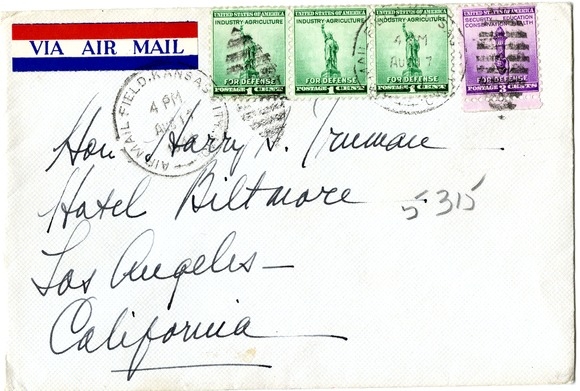 VIA AIR MAIL
UNITED STATES OF AMERICA
INDUSTRY-AGRICULTURE
FOR DEFENSE
POSTAGE 1 CENT
UNITED STATES OF AMERICA
INDUSTRY-AGRICULTURE
FOR DEFENSE
POSTAGE 1 CENT
UNITED STATES OF AMERICA
INDUSTRY-AGRICULTURE
FOR DEFENSE
POSTAGE 1 CENT
UNITED STATES OF AMERICA
SECURITY EDUCATION
CONSERVATION HEALTH
FOR DEFENSE
POSTAGE 3 CENTS
AIR MAIL FIELD, KANSAS
4 PM
AUG
Hon. Harry S. Truman
Hotel Biltmore
5315
Los Angeles—
California